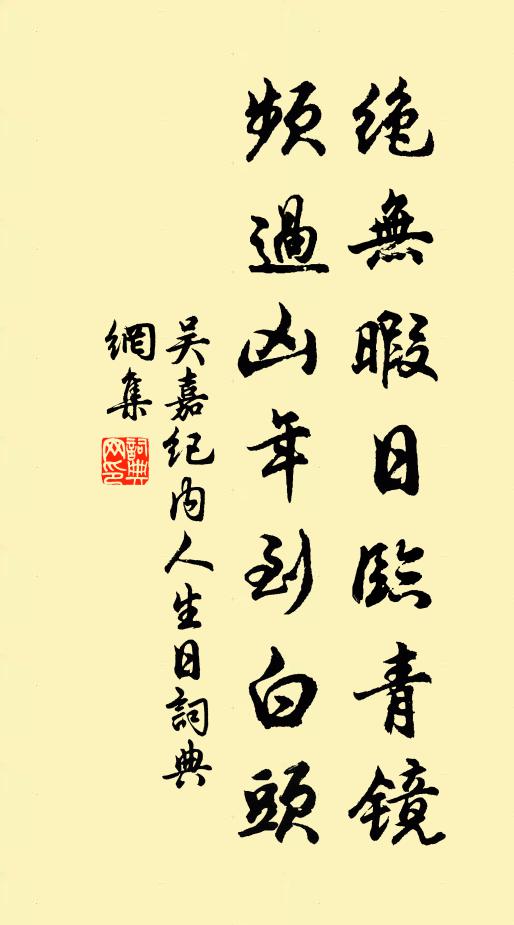 絶無暇日臨青鏡
頻過凶年到白頭
吴嘉紀內人生日詞典
網集
詞典
网印